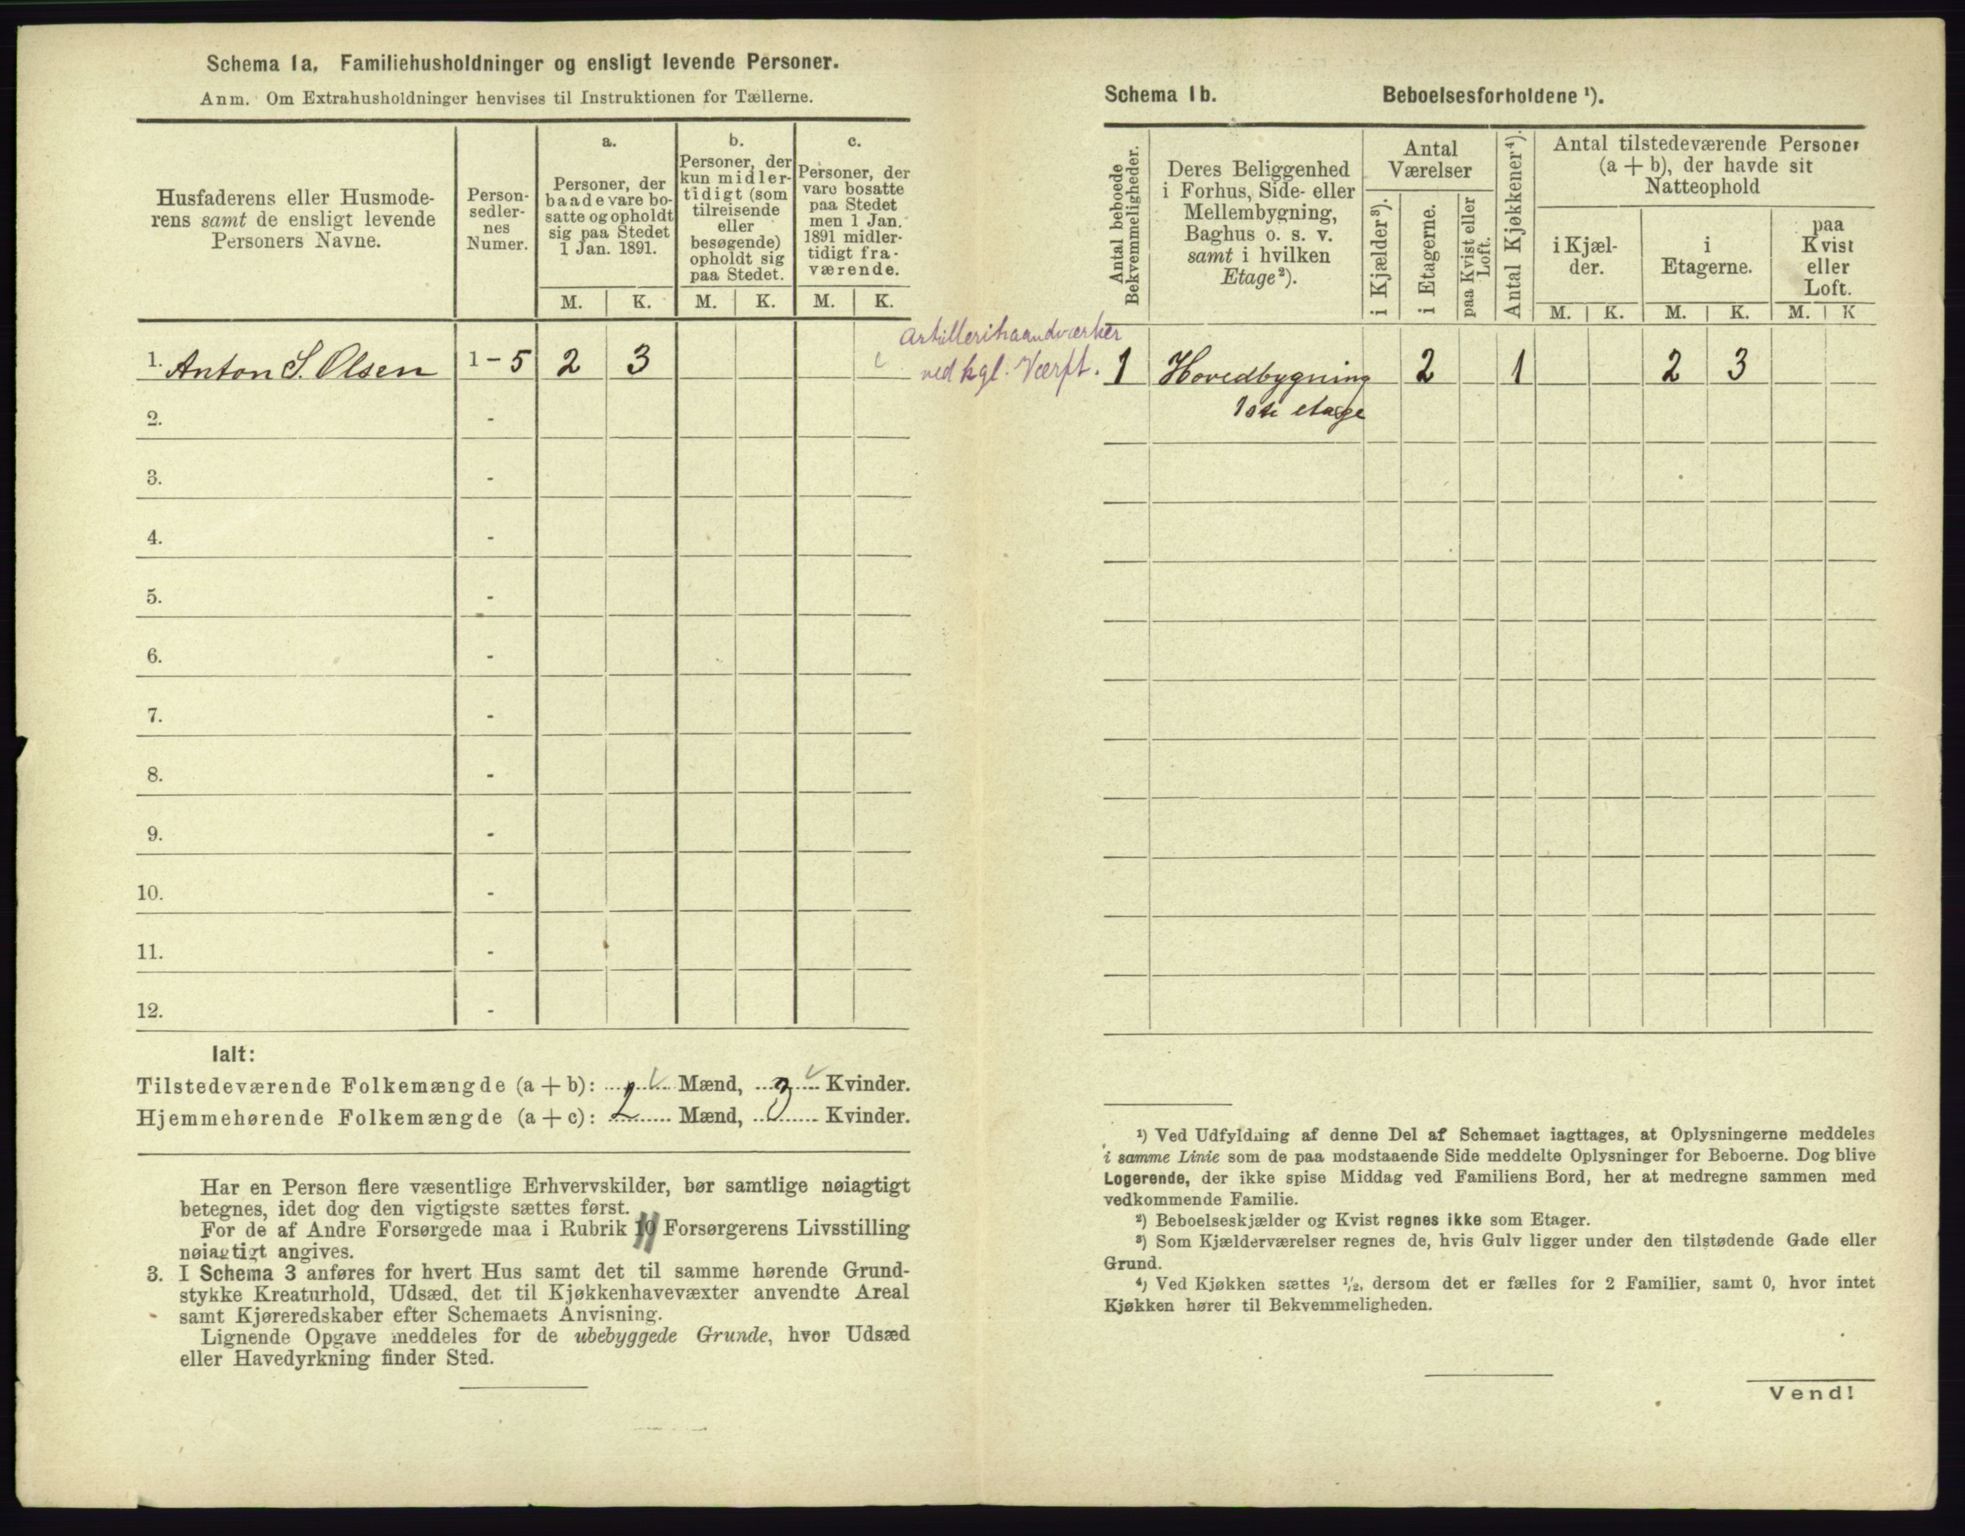 Schema 1a, Familiehusholdninger og ensligt levende Personer.
Anm. Om Extrahusholdninger henvises til Instruktionen for Tællerne.
Husfaderens eller Husmode-
rens samt de ensligt levende
Personers Navne.
Person-
sedler-
nes
Numer.
a.
Personer, der
baade vare bo-
satte og opholdt
sig paa Stedet
1 Jan. 1891.
M. K.
b.
Personer, der
kun midler-
tidigt (som
tilreisende
eller
besøgende)
opholdt sig
paa Stedet.
M. K.
c.
Personer, der
vare bosatte
paa Stedet
men 1 Jan.
1891 midler-
tidigt fra-
værende.
M. K.
1. Anton S. Olsen 1 - 5 2 3
2. -
3. -
4. -
5. -
6. -
7. -
8. -
9. -
10. -
11. -
12. -
Ialt:
Tilstedeværende Folkemængde (a + b): 2 Mænd, 3 Kvinder.
Hjemmehørende Folkemængde (a + c): 2 Mænd, 3 Kvinder.
Har en Person flere væsentlige Erhvervskilder, bør samtlige nøiagtigt
betegnes, idet dog den vigtigste sættes først.
For de af Andre Forsørgede maa i Rubrik 11 Forsørgerens Livsstilling
nøiagtigt angives.
3. I Schema 3 anføres for hvert Hus samt det til samme hørende Grund-
stykke Kreaturhold, Udsæd, det til Kjøkkenhavevæxter anvendte Areal
samt Kjøreredskaber efter Schemaets Anvisning.
Lignende Opgave meddeles for de ubebyggede Grunde, hvor Udsæd
eller Havedyrkning finder Sted.
Artillerihaandværker
ved kgl. Værft.
Schema 1b. Beboelsesforholdene ¹).
Antal beboede
Bekvemmeligheder.
Deres Beliggenhed
i Forhus, Side- eller
Mellembygning,
Baghus o. s. v.
samt i hvilken
Etage²).
Antal
Værelser
i Kjælder³).
i Etagerne.
paa Kvist eller
Loft.
Antal Kjøkkener⁴).
Antal tilstedeværende Personer
(a + b), der havde sit
Natteophold
i Kjæl-
der.
i
Etagerne.
paa
Kvist
eller
Loft.
M. K. M. K. M. K
1 Hovedbygning 2 1 2 3
1ste etage
¹) Ved Udfyldning af denne Del af Schemaet iagttages, at Oplysningerne meddeles
i samme Linie som de paa modstaaende Side meddelte Oplysninger for Beboerne. Dog blive
Logerende, der ikke spise Middag ved Familiens Bord, her at medregne sammen med
vedkommende Familie.
²) Beboelseskjælder og Kvist regnes ikke som Etager.
³) Som Kjælderværelser regnes de, hvis Gulv ligger under den tilstødende Gade eller
Grund.
⁴) Ved Kjøkken sættes ½, dersom det er fælles for 2 Familier, samt 0, hvor intet
Kjøkken hører til Bekvemmeligheden.
Vend!